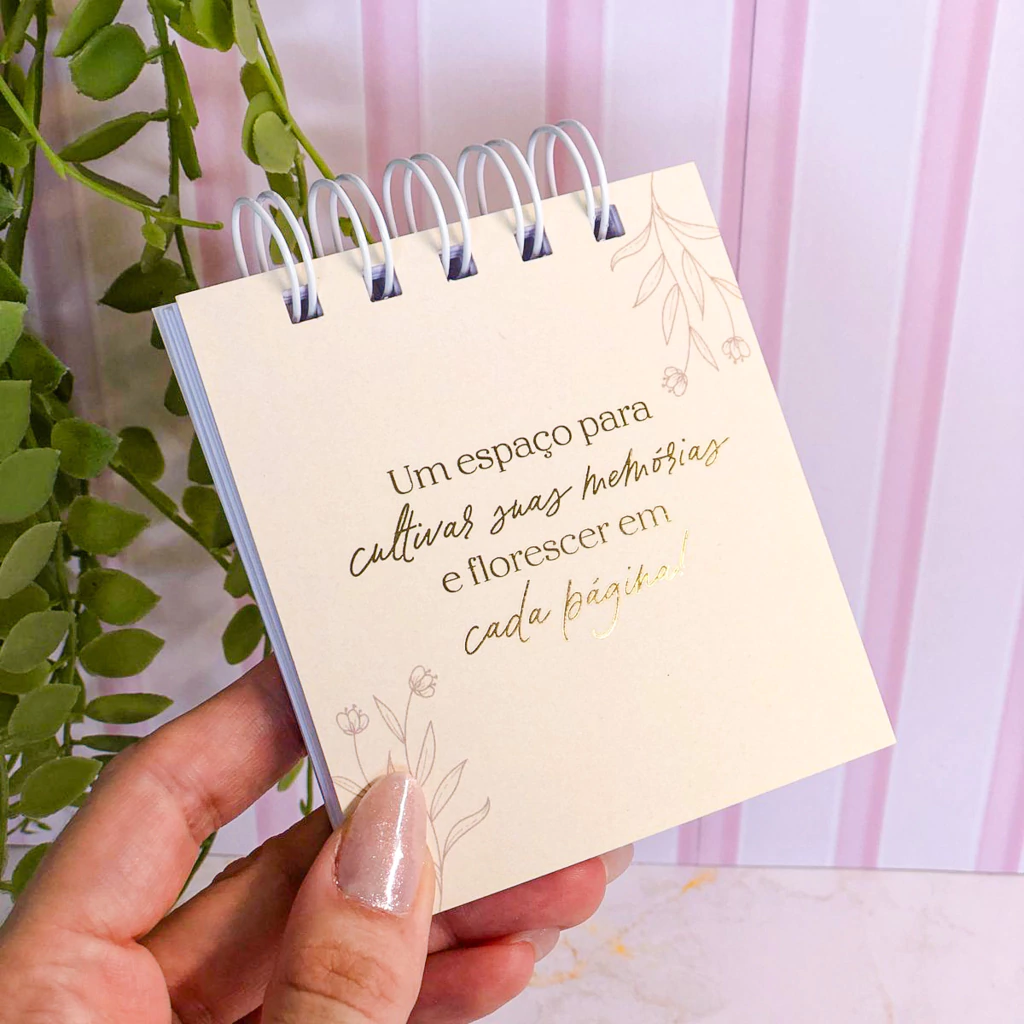 Um espaço para
cultivar suas memórias
e florescer em
cada página!